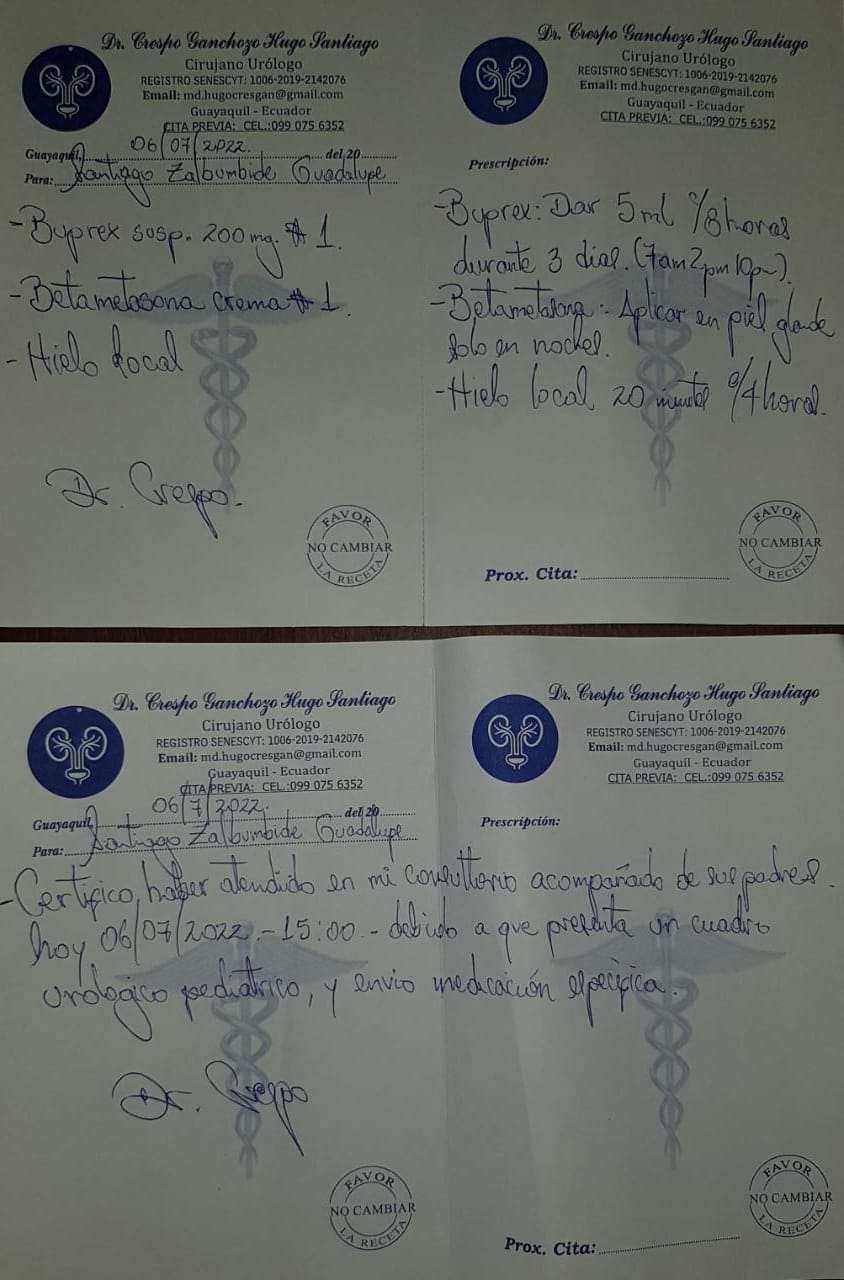 Dr. Crespo Ganchozo Hugo Santiago
Cirujano Urólogo
REGISTRO SENESCYT: 1006-2019-2142076
Email: md.hugocresgan@gmail.com
Guayaquil - Ecuador
CITA PREVIA: CEL.:099 075 6352
Guayaquil, 06/07/2022. del 20
Para: Santiago Zalbumbide Guadalupe
- Buprex susp. 200mg. # 1.
- Betametasona crema # 1.
- Hielo Local
Dr. Crespo.
FAVOR
NO CAMBIAR
LA RECETA
Dr. Crespo Ganchozo Hugo Santiago
Cirujano Urólogo
REGISTRO SENESCYT: 1006-2019-2142076
Email: md.hugocresgan@gmail.com
Guayaquil - Ecuador
CITA PREVIA: CEL.:099 075 6352
Prescripción:
- Buprex: Dar 5ml c/8horas
durante 3 dias. (7am 2pm 10pm).
- Betametasona: Aplicar en piel glande
solo en noches.
- Hielo local 20 minutos c/4horas.
Prox. Cita:
FAVOR
NO CAMBIAR
LA RECETA
Dr. Crespo Ganchozo Hugo Santiago
Cirujano Urólogo
REGISTRO SENESCYT: 1006-2019-2142076
Email: md.hugocresgan@gmail.com
Guayaquil - Ecuador
CITA PREVIA: CEL.:099 075 6352
Guayaquil, 06/7/2022. del 20
Para: Santiago Zalbumbide Guadalupe
Dr. Crespo Ganchozo Hugo Santiago
Cirujano Urólogo
REGISTRO SENESCYT: 1006-2019-2142076
Email: md.hugocresgan@gmail.com
Guayaquil - Ecuador
CITA PREVIA: CEL.:099 075 6352
Prescripción:
- Certifico, haber atendido en mi consultorio acompañado de sus padres.
hoy 06/07/2022.- 15:00.- debido a que presenta un cuadro
urológico pediátrico, y envio medicación específica.
Dr. Crespo
FAVOR
NO CAMBIAR
LA RECETA
Prox. Cita:
FAVOR
NO CAMBIAR
LA RECETA